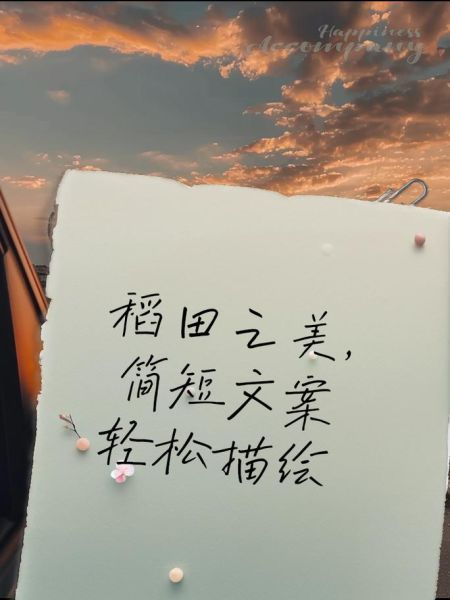 Happiness
Accompany
稻田之美,
简短文案
轻松描绘